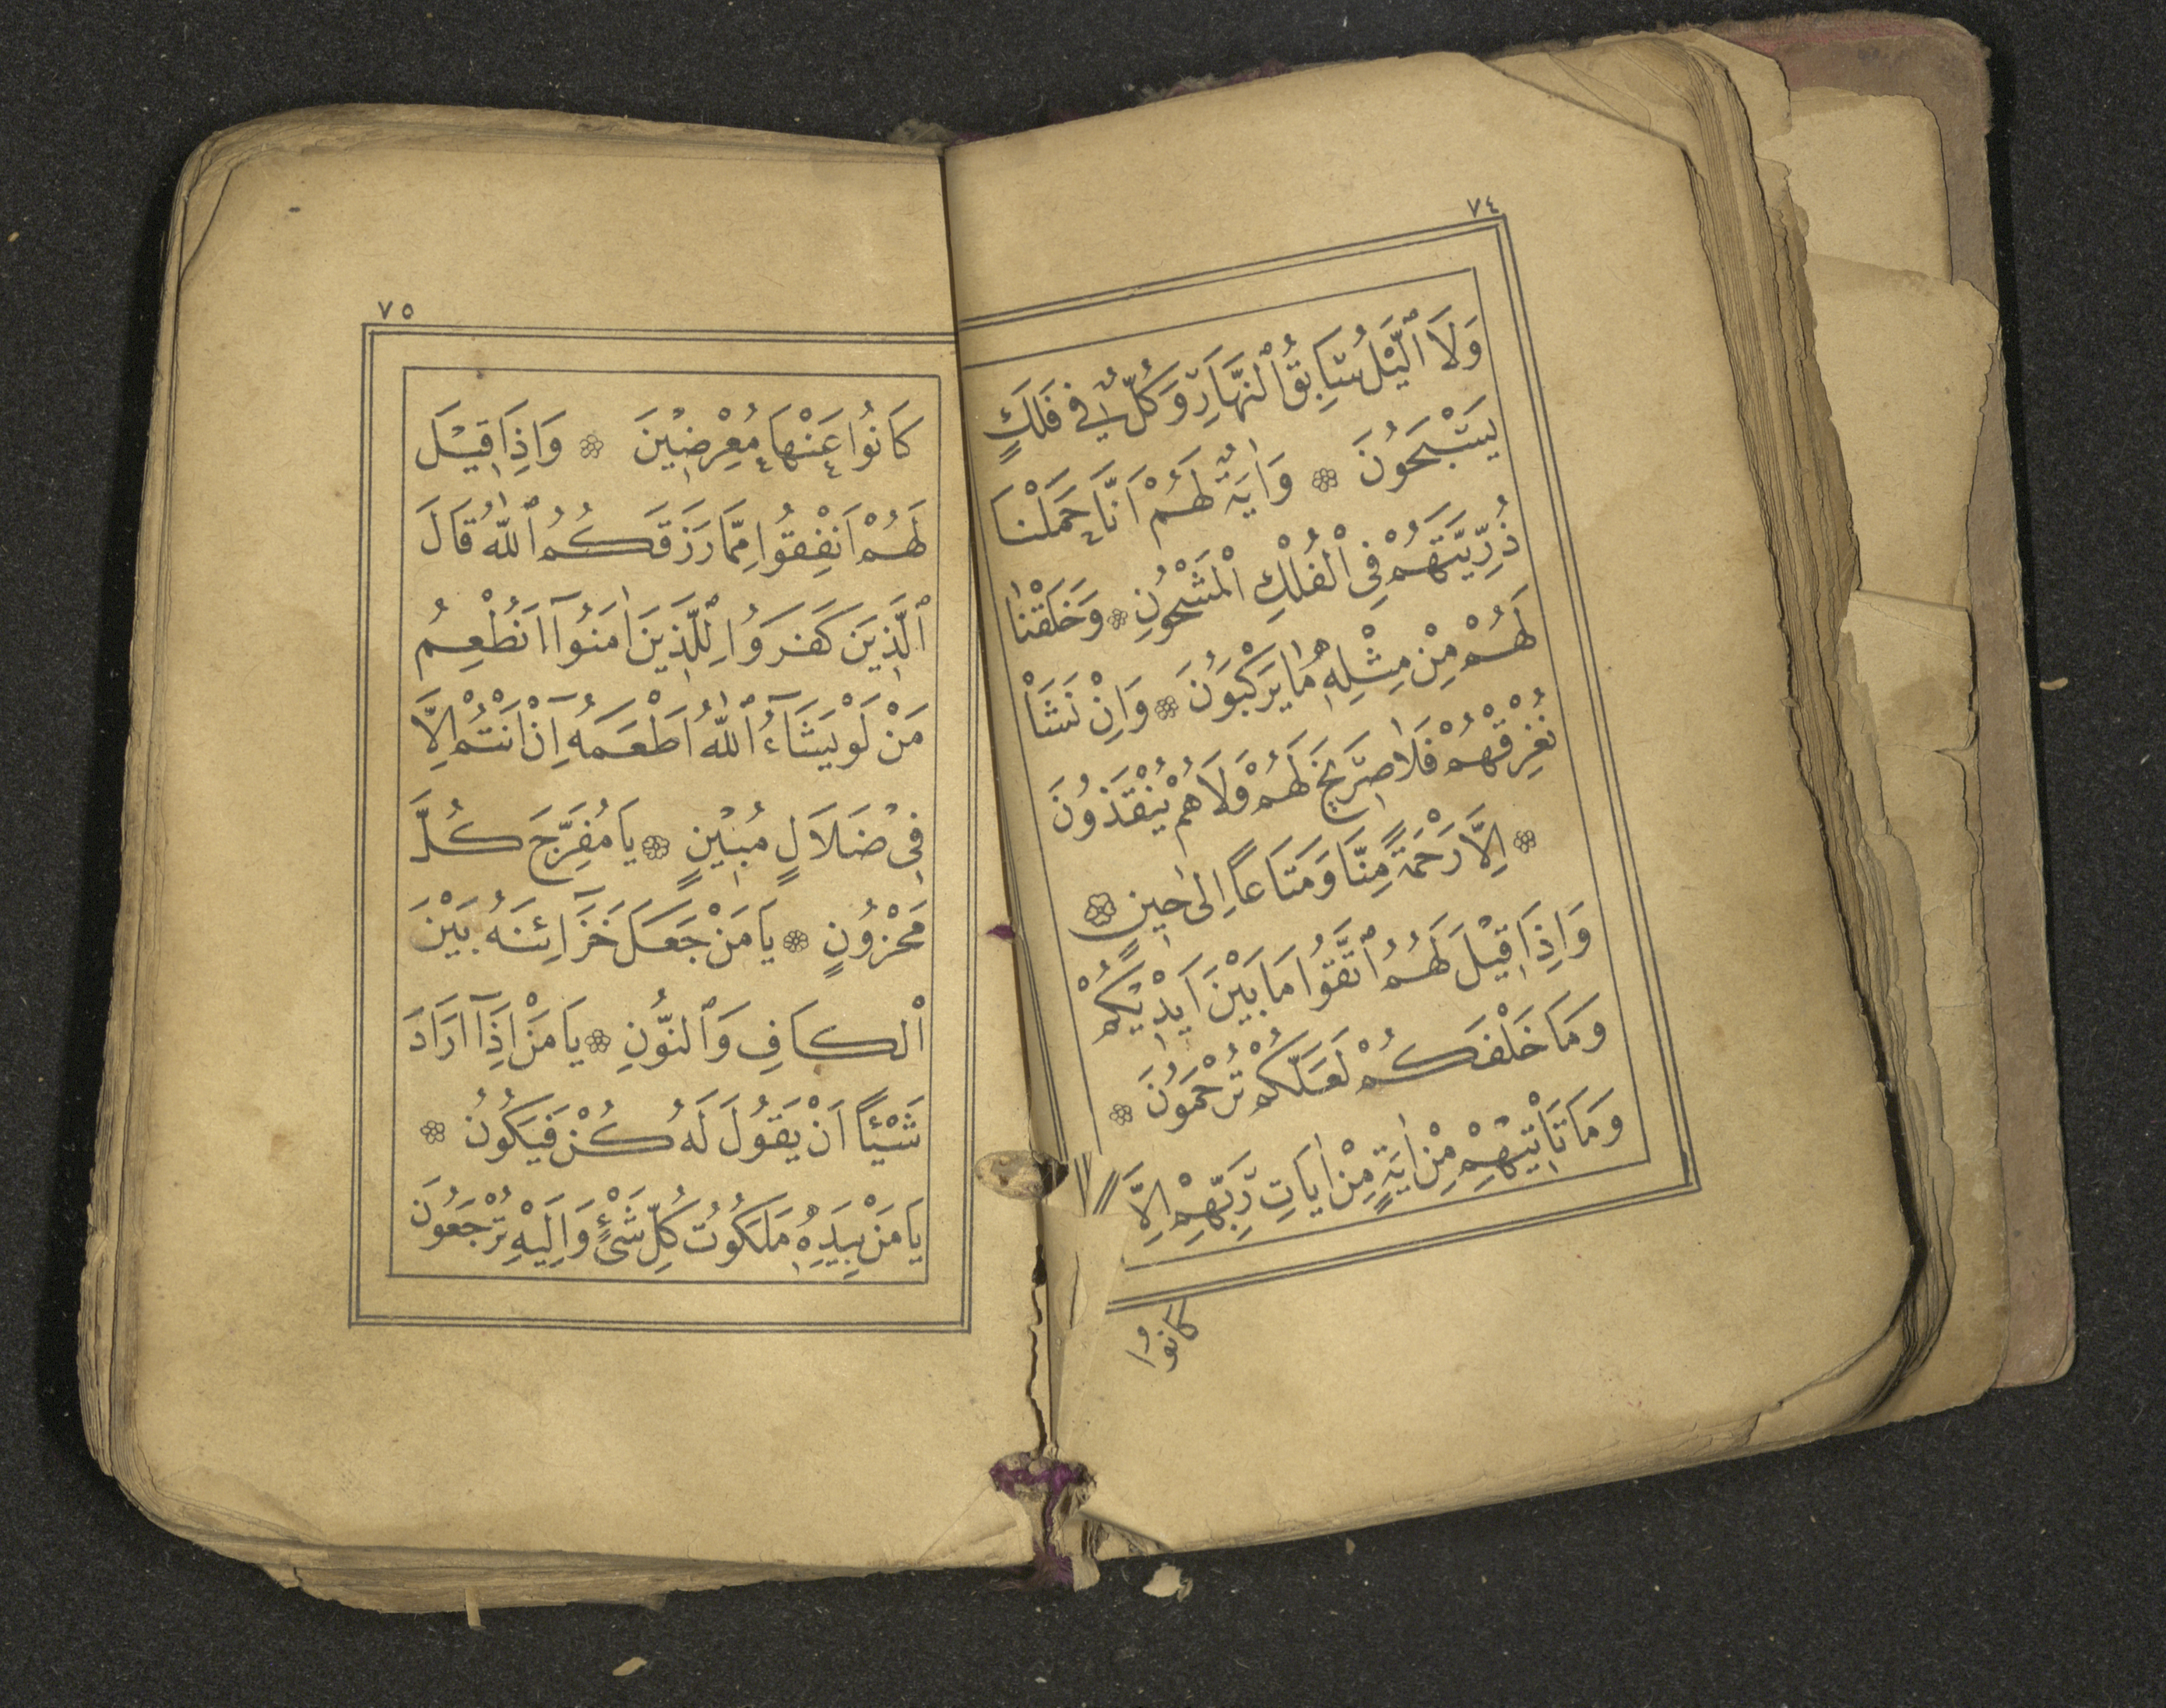 ٧٤
وَلَا ٱلَّيْلُ سَابِقُ ٱلنَّهَارِ وَكُلٌّ فِي فَلَكٍ
يَسْبَحُونَ ۞ وَاٰيَةٌ لَهُمْ اَنَّا حَمَلْنَا
ذُرِّيَّتَهُمْ فِي ٱلْفُلْكِ الْمَشْحُونِ ۞ وَخَلَقْنَا
لَهُمْ مِنْ مِثْلِهِ مَا يَرْكَبُونَ ۞ وَاِنْ نَشَأْ
نُغْرِقْهُمْ فَلَا صَرِيخَ لَهُمْ وَلَا هُمْ يُنْقَذُونَ
۞ اِلَّا رَحْمَةً مِنَّا وَمَتَاعاً اِلٰى حِينٍ ۞
وَاِذَا قِيْلَ لَهُمُ ٱتَّقُوا مَا بَيْنَ اَيْدِيْكُمْ
وَمَا خَلْفَكُمْ لَعَلَّكُمْ تُرْحَمُونَ ۞
وَمَا تَأْتِيْهِمْ مِنْ اٰيَةٍ مِنْ اٰيَاتِ رَبِّهِمْ اِلَّا
كَانُوا
٧٥
كَانُوا عَنْهَا مُعْرِضِيْنَ ۞ وَاِذَا قِيْلَ
لَهُمْ اَنْفِقُوا مِمَّا رَزَقَكُمُ ٱللّٰهُ قَالَ
ٱلَّذِيْنَ كَفَرَوُا لِلَّذِيْنَ اٰمَنُوٓا اَنُطْعِمُ
مَنْ لَوْ يَشَآءُ ٱللّٰهُ اَطْعَمَهُٓ اِنْ اَنْتُمْ اِلَّا
فِيْ ضَلَالٍ مُبِيْنٍ ۞ يَا مُفَرِّجَ كُلِّ
مَحْزُونٍ ۞ يَا مَنْ جَعَلَ خَزَآئِنَهُ بَيْنَ
ٱلْكَافِ وَٱلنُّونِ ۞ يَا مَنْ اِذَآ اَرَادَ
شَيْئًا اَنْ يَقُولَ لَهُ كُنْ فَيَكُونُ ۞
يَا مَنْ بِيَدِهِ مَلَكُوتُ كُلِّ شَيْءٍ وَاِلَيْهِ تُرْجَعُونَ